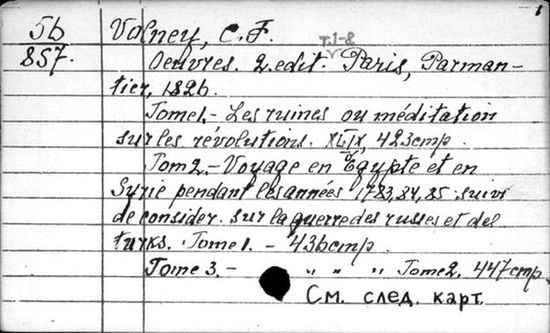 1
56 Volney, C. F.
857. т.1-8
Oeuvres. 2. edit. Paris, Parman-
tier, 1826.
Tome 1. - Les ruines ou méditation
sur les révolutions. XLIX, 423 cmp.
Tom 2. - Voyage en Egypte et en
Syrie pendant les années 1783, 84, 85 suivi
de consider. sur la guerre des russes et des
turks. Tome 1. - 436 cmp.
Tome 3. - " " " Tome 2, 447 cmp.
См. след. карт.